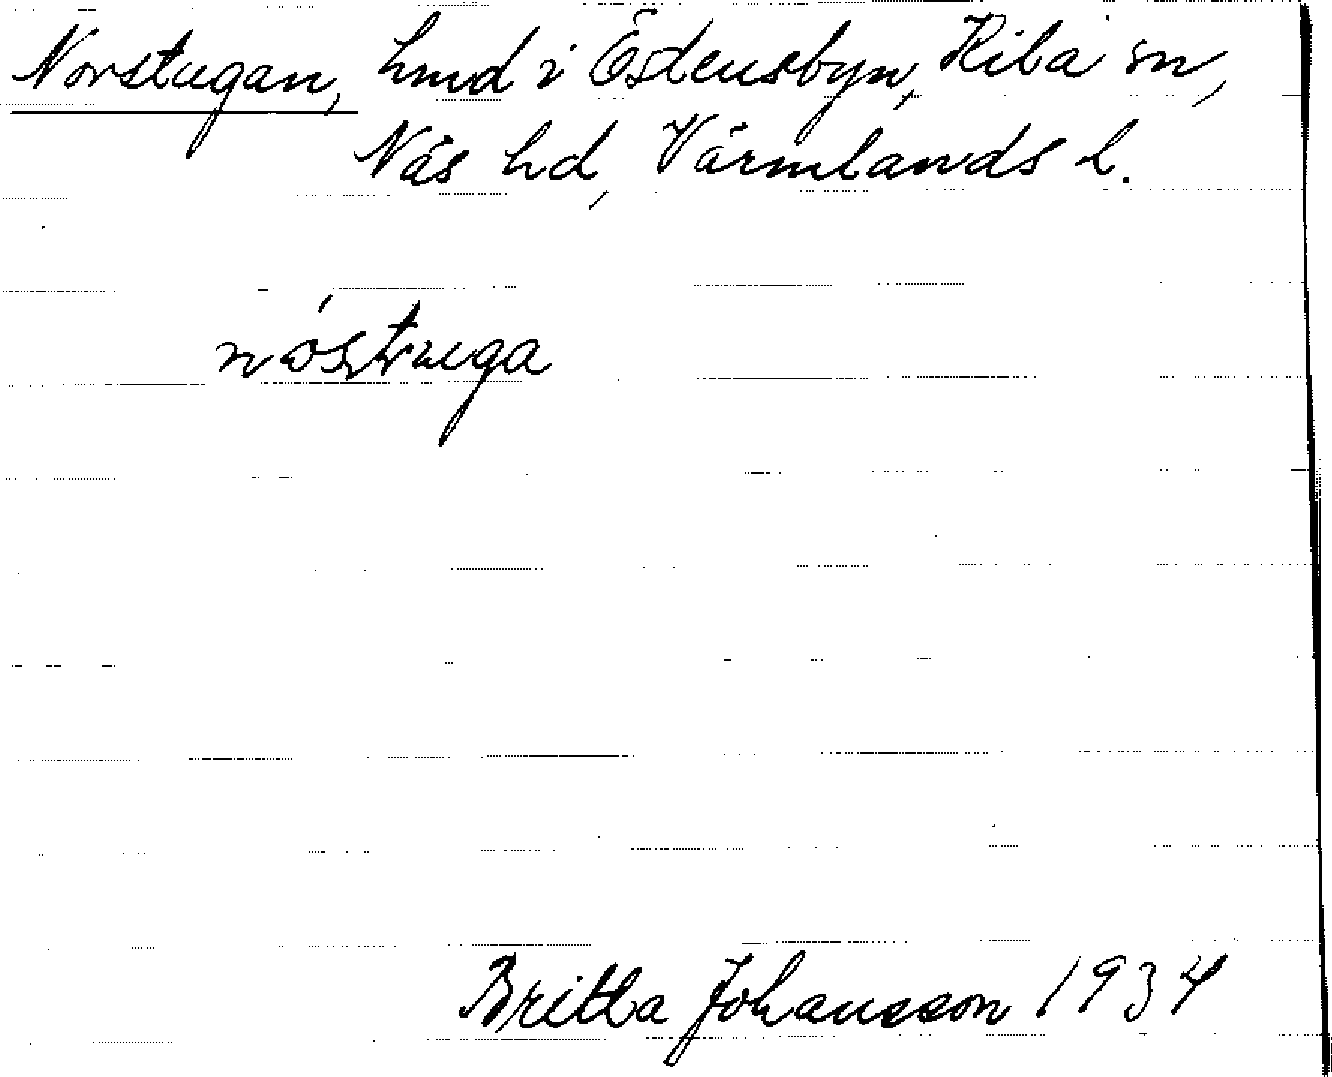 Norstugan, hmd i Östensbyn, Kila sn,
Näs hd, Värmlands l.
nóstuga
Britta Johansson 1934